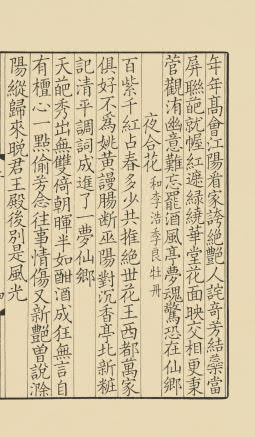 年年高會江陽看家誇絶艷人詫奇芳結蘂當
屏聯葩就幄紅遮綠繞華堂花面映交相更秉
菅觀洧幽意難忘罷酒風亭夢魂驚恐在仙鄉
夜合花 和李浩季良牡丹
百紫千紅占春多少共推絶世花王西都萬家
俱好不爲姚黄謾腸斷巫陽對沉香亭北新粧
記清平調詞成進了一夢仙鄉
天葩秀出無雙倚朝暉半如酣酒成狂無言自
有檀心一點偷芳念往事情傷又新艷曾說滁
陽縱歸來晚君王殿後別是風光